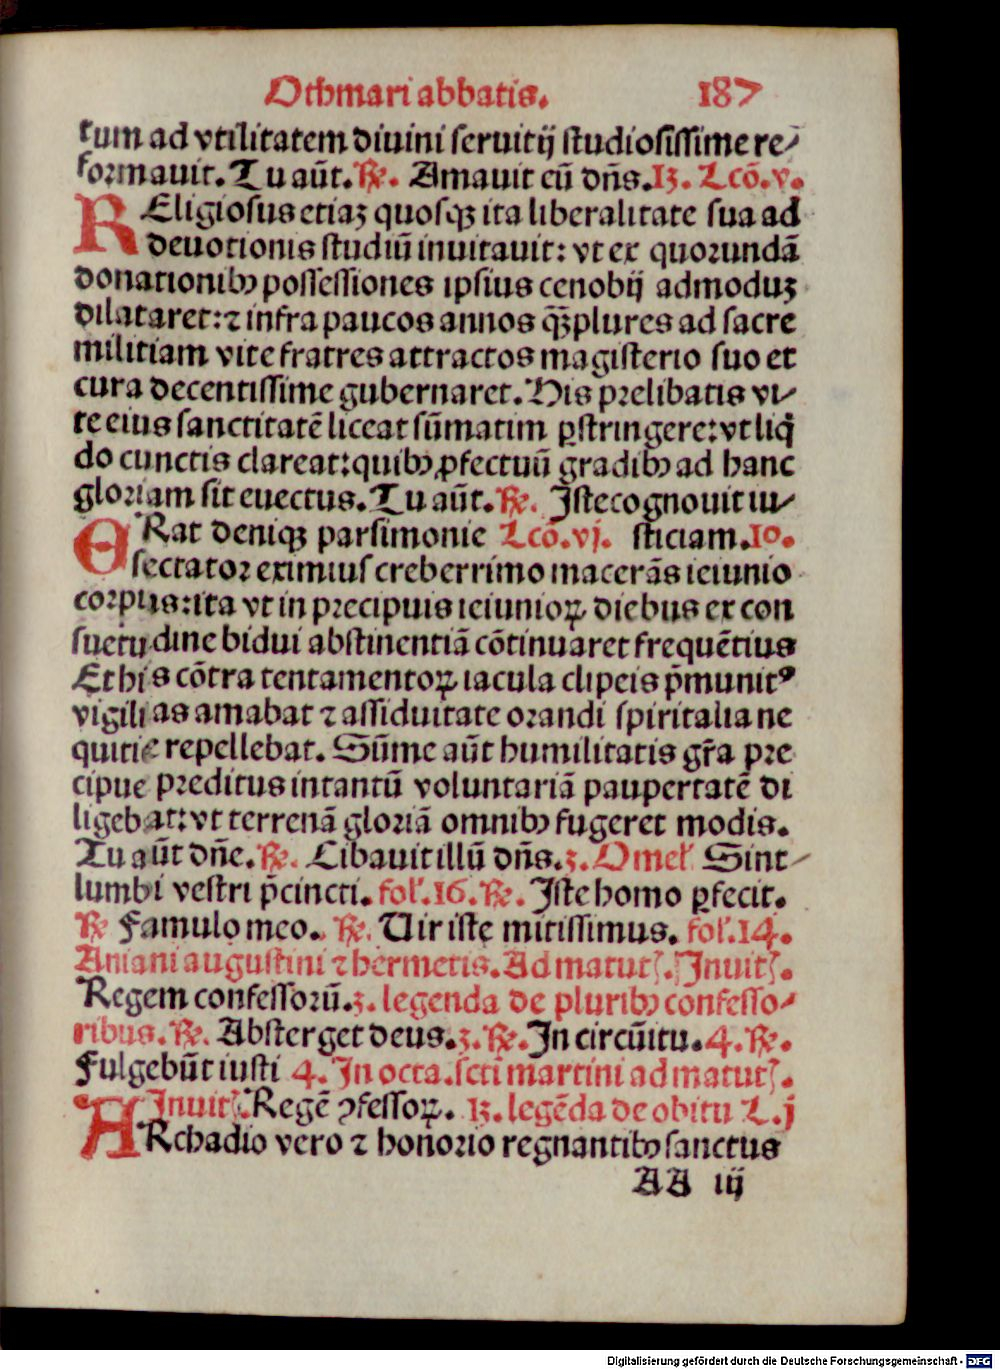 Othmari abbatis. 187
tum ad vtilitatem diuini seruitij studiosissime re⸗
formauit. Tu aūt. ℟. Amauit eū dn̄s. 13. Lcō. v.
REligiosus etiaꝫ quosqꝫ ita liberalitate sua ad
deuotionis studiū inuitauit: vt ex quorundā
donationibꝰ possessiones ipsius cenobij admoduꝫ
dilataret: ⁊ infra paucos annos qꝫplures ad sacre
militiam vite fratres attractos magisterio suo et
cura decentissime gubernaret. His prelibatis vi⸗
te eius sanctitatē liceat sūmatim ꝑstringere: vt liq̄
do cunctis clareat: quibꝰ ꝓfectuū gradibꝰ ad hanc
gloriam sit euectus. Tu aūt. ℟. Iste cognouit iu⸗
ERat deniqꝫ parsimonie Lcō. vj. sticiam. 10.
sectator eximius creberrimo macerās ieiunio
corpus: ita vt in precipuis ieiunioꝝ diebus ex con
suetudine bidui abstinentiā cōtinuaret frequētius
Et his cōtra tentamentoꝝ iacula clipeis p̄munitꝰ
vigilias amabat ⁊ assiduitate orandi spiritalia ne
quitie repellebat. Sūme aūt humilitatis gr̄a pre
cipue preditus intantū voluntariā paupertatē di
ligebat: vt terrenā gloriā omnibꝰ fugeret modis.
Tu aūt dn̄e. ℟. Cibauit illū dn̄s. 3. Omel̕ Sint
lumbi vestri p̄cincti. fol̕. 16. ℟. Iste homo ꝑfecit.
℟ Famulo meo. ℟. Uir iste mitissimus. fol̕. 14.
Aniani augustini ⁊ hermetis. Ad matutꝭ. Inuitꝭ.
Regem confessorū. 3. legenda de pluribꝰ confesso⸗
ribus. ℟. Absterget deus. 3. ℟. In circūitu. 4. ℟.
Fulgebūt iusti 4. In octa. scti martini ad matutꝭ.
Inuitꝭ. Regē ꝯfessoꝝ. 13. legēda de obitu L. j
ARchadio vero ⁊ honorio regnantibꝰ sanctus
AA iij
Digitalisierung gefördert durch die Deutsche Forschungsgemeinschaft - DFG